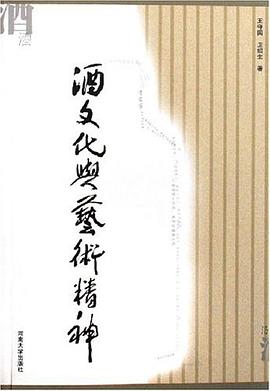 酒
酒
王守国 卫绍生 著
酒文化與藝術精神
河南大学出版社